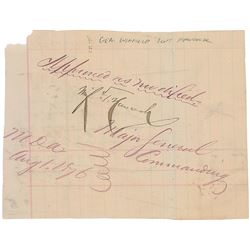 GEN. WINFIELD SCOTT HANCOCK
Approved as modified.
Winf'd S. Hancock
Major General
Commanding
M.D.A.
Aug 1. 1876